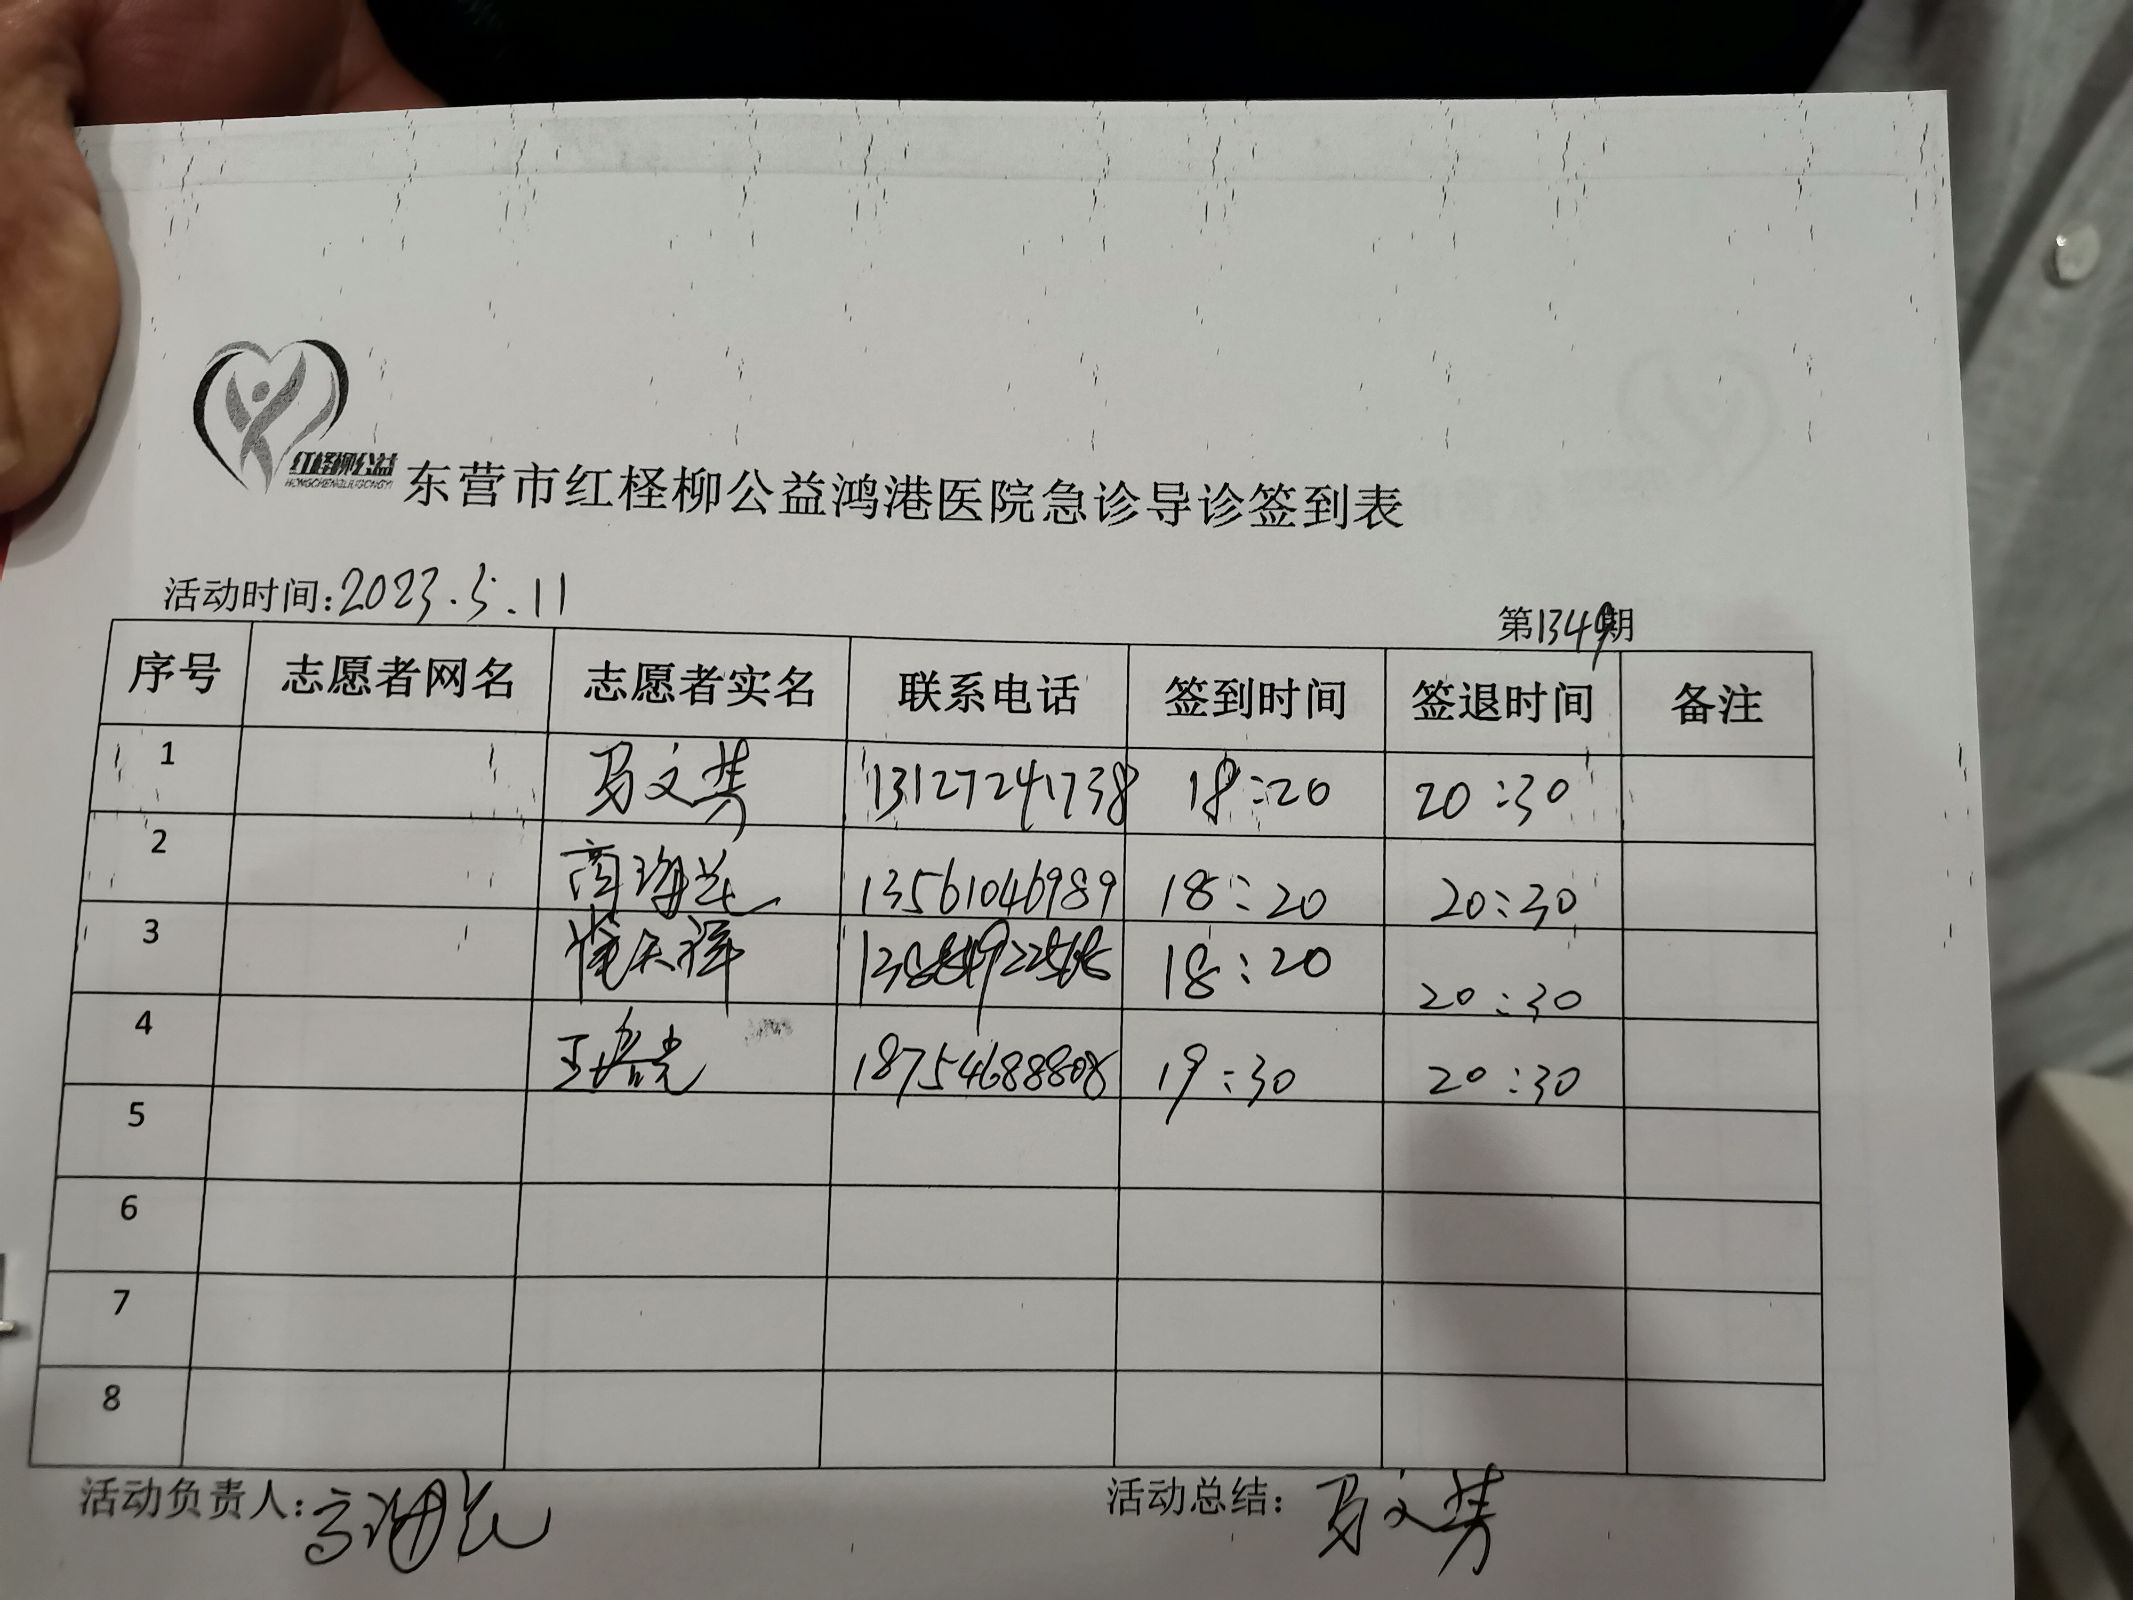 红柽柳公益
HONGCHENGLIUGONGYI
东营市红柽柳公益鸿港医院急诊导诊签到表
活动时间:2023.5.11
第1349期
序号 志愿者网名 志愿者实名 联系电话 签到时间 签退时间 备注
1 马文 13127241738 18:20 20:30
2 商海兰 13561046989 18:20 20:30
3 崔天祥 18:20 20:30
4 王 18754688808 19:30 20:30
5
6
7
8
活动负责人:
活动总结: 马文